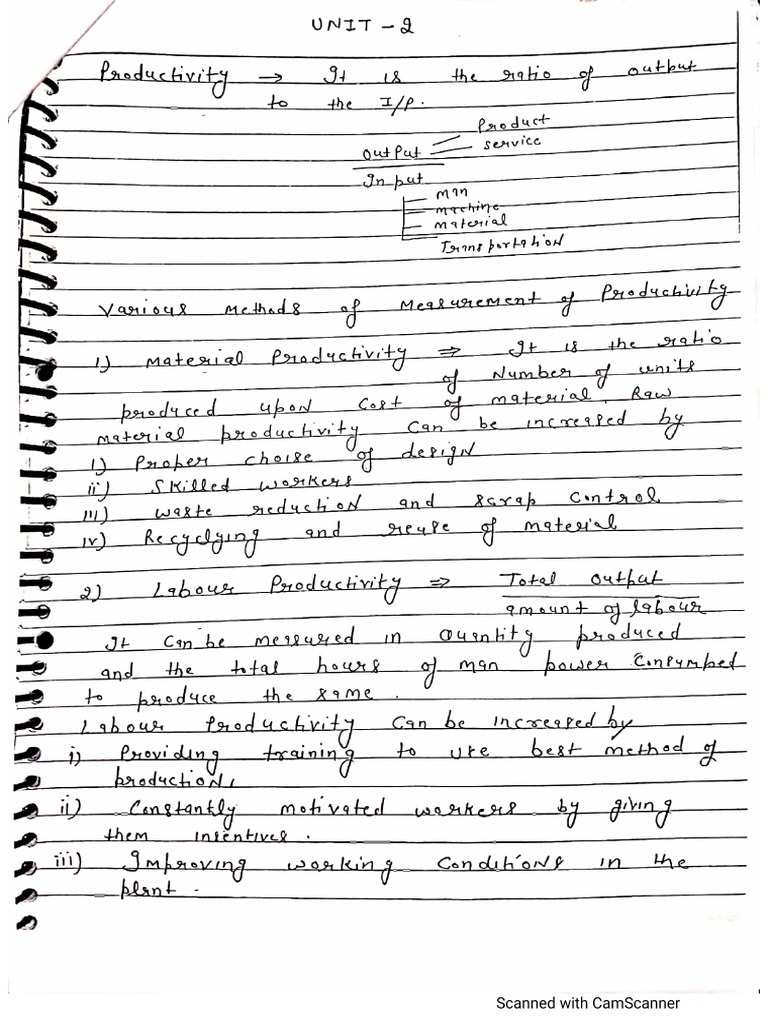 UNIT - 2
Productivity → It is the ratio of output
to the I/P.
Product
Output service
Input
man
machine
material
Transportation
Various Methods of Measurement of Productivity
1) Material Productivity ⇒ It is the ratio
of Number of units
produced upon cost of material. Raw
material productivity can be increased by
i) Proper choise of design
ii) Skilled workers
iii) waste reduction and scrap control
iv) Recyclying and reuse of material
2) Labour Productivity ⇒ Total output
amount of labour
It can be measured in Quantity produced
and the total hours of man power consumped
to produce the same.
Labour Productivity can be increased by
i) Providing training to use best method of
production,
ii) Constantly motivated workers by giving
them insentives.
iii) Improving working conditions in the
plant.
Scanned with CamScanner